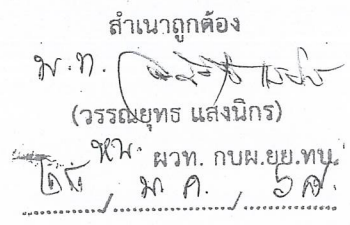 สำเนาถูกต้อง
พ.ท.
(วรรณยุทธ แสงนิกร)
หน. ผวท. กบผ.ยย.ทบ.
/ ม.ค. /